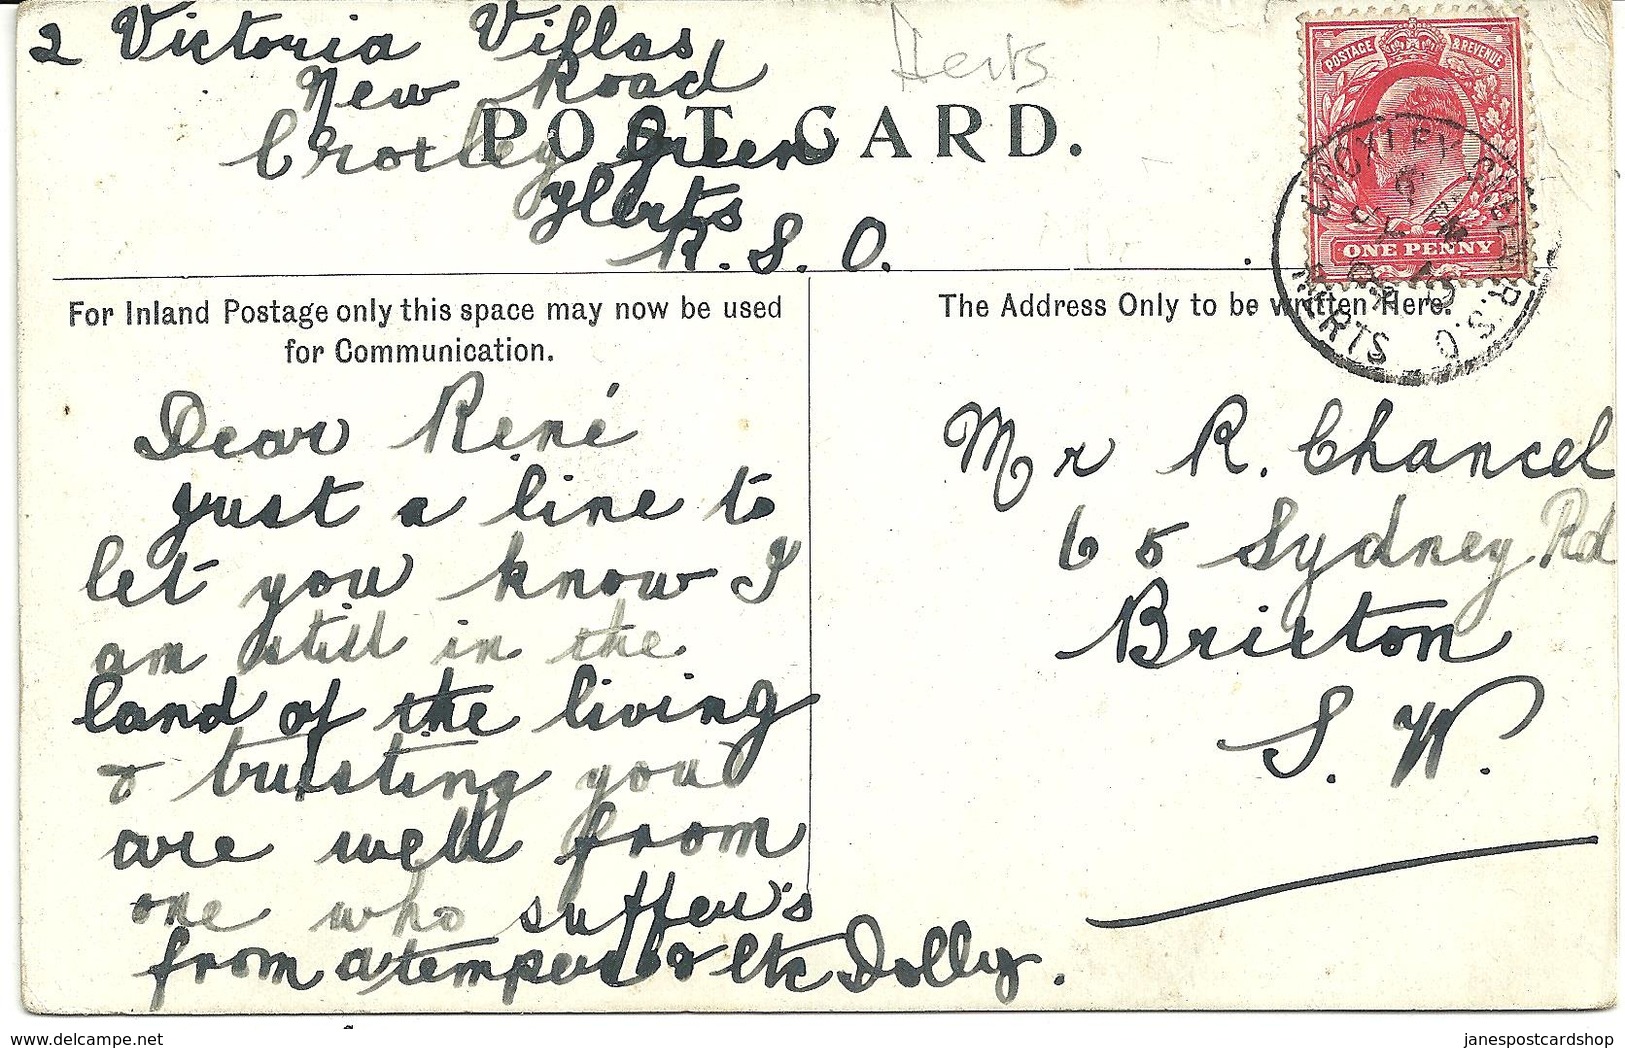 2 Victoria Villas
New Road
Croxley Green
Herts
R.S.O.
Herts
POST CARD.
POSTAGE & REVENUE
ONE PENNY
CROXLEY GREEN R.S.O.
HERTS
For Inland Postage only this space may now be used
for Communication.
The Address Only to be written Here.
Dear René
just a line to
let you know I
am still in the
land of the living
& trusting you
are well from
one who suffer's
from a temper & Etc Dolly.
Mr R. Chancel
65 Sydney Rd
Brixton
S. W.
delcampe.net
janespostcardshop